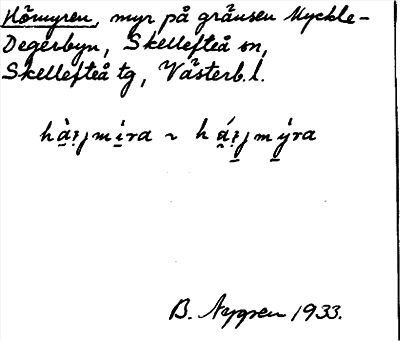 Hörmyren, myr på gränsen Myckle-
Degerbyn, Skellefteå sn,
Skellefteå tg, Västerb.l.
B. Nygren 1933.